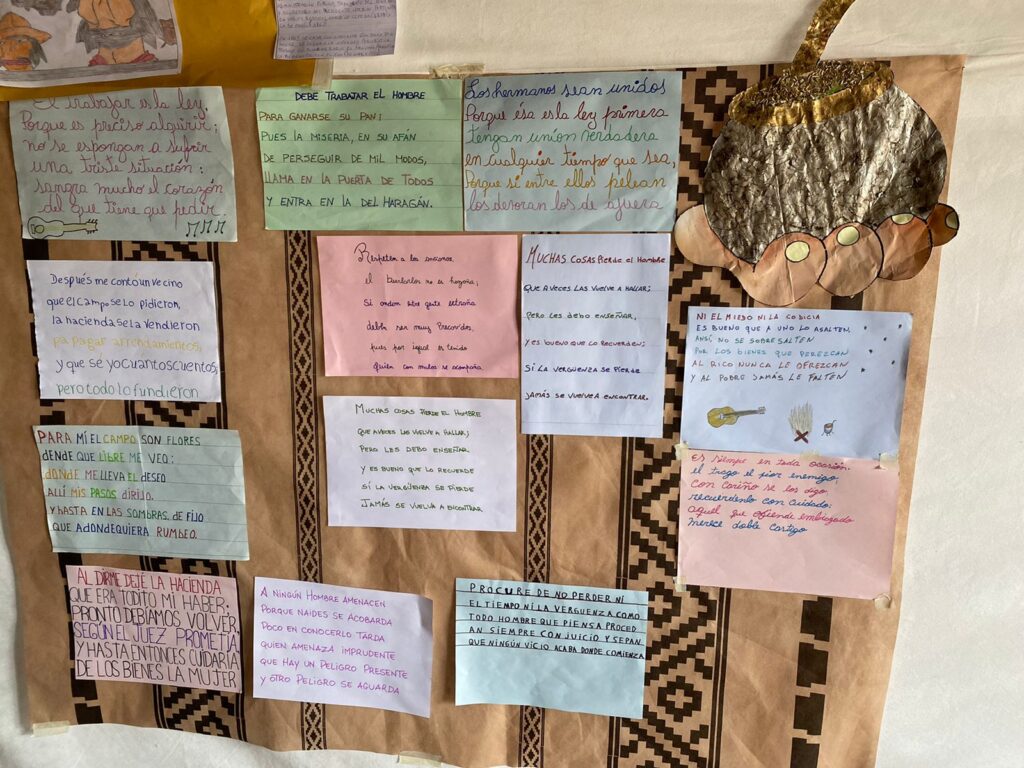 El trabajar es la ley,
Porque es preciso alquirir;
no se espongan a sufrir
una triste situación:
sangra mucho el Corazón
del que tiene que pedir.
DEBE TRABAJAR EL HOMBRE
PARA GANARSE SU PAN;
PUES LA MISERIA, EN SU AFÁN
DE PERSEGUIR DE MIL MODOS,
LLAMA EN LA PUERTA DE TODOS
Y ENTRA EN LA DEL HARAGÁN.
Los hermanos sean unidos
Porque esa es la ley primera
tengan unión verdadera
en cualquier tiempo que sea,
Porque si entre ellos pelean
los devoran los de afuera
Después me contó un vecino
que el campo se lo pidieron,
la hacienda se la vendieron
pa pagar arrendamientos,
y que sé yo cuantos cuentos;
pero todo lo fundieron
Respeten a los ancianos,
el burlarlos no es hazaña;
Si andan entre gente estraña
deben ser muy Precavidos,
pues por igual es tenido
Quien con malos se acompaña
MUCHAS COSAS PIERDE EL HOMBRE
QUE A VECES LAS VUELVE A HALLAR;
PERO LES DEBO ENSEÑAR,
Y ES BUENO QUE LO RECUERDEN;
SI LA VERGÜENZA SE PIERDE
JAMÁS SE VUELVE A ENCONTRAR.
NI EL MIEDO NI LA CODICIA
ES BUENO QUE A UNO LO ASALTEN.
ANSÍ NO SE SOBRESALTEN
POR LOS BIENES QUE PEREZCAN
AL RICO NUNCA LE OFREZCAN
Y AL POBRE JAMÁS LE FALTEN
MUCHAS COSAS PIERDE EL HOMBRE
QUE A VECES LAS VUELVE A HALLAR;
PERO LES DEBO ENSEÑAR
Y ES BUENO QUE LO RECUERDE
SÍ LA VERGÜENZA SE PIERDE
JAMÁS SE VUELVA A ENCONTRAR
PARA MÍ EL CAMPO SON FLORES
DENDE QUE LIBRE ME VEO:
DONDE ME LLEVA EL DESEO
ALLÍ MIS PASOS DIRIJO.
Y HASTA EN LAS SOMBRAS, DE FIJO
QUE ADONDEQUIERA RUMBEO.
Es siempre en toda ocasión.
el trago el pior enemigo,
con cariño se los digo,
recuerdenlo con cuidado:
aquel que ofiende embriagado
merece doble castigo
AL DIRME DEJÉ LA HACIENDA
QUE ERA TODITO MI HABER;
PRONTO DEBÍAMOS VOLVER,
SEGÚN EL JUEZ PROMETÍA,
Y HASTA ENTONCES CUIDARÍA
DE LOS BIENES LA MUJER
A NINGÚN HOMBRE AMENACEN
PORQUE NAIDES SE ACOBARDA
POCO EN CONOCERLO TARDA
QUIEN AMENAZA IMPRUDENTE
QUE HAY UN PELIGRO PRESENTE
Y OTRO PELIGRO SE AGUARDA
PROCURE DE NO PERDER NI
EL TIEMPO NI LA VERGUENZA COMO
TODO HOMBRE QUE PIENSA PROCED
AN SIEMPRE CON JUICIO Y SEPAN
QUE NINGUN VICIO ACABA DONDE COMIENZA